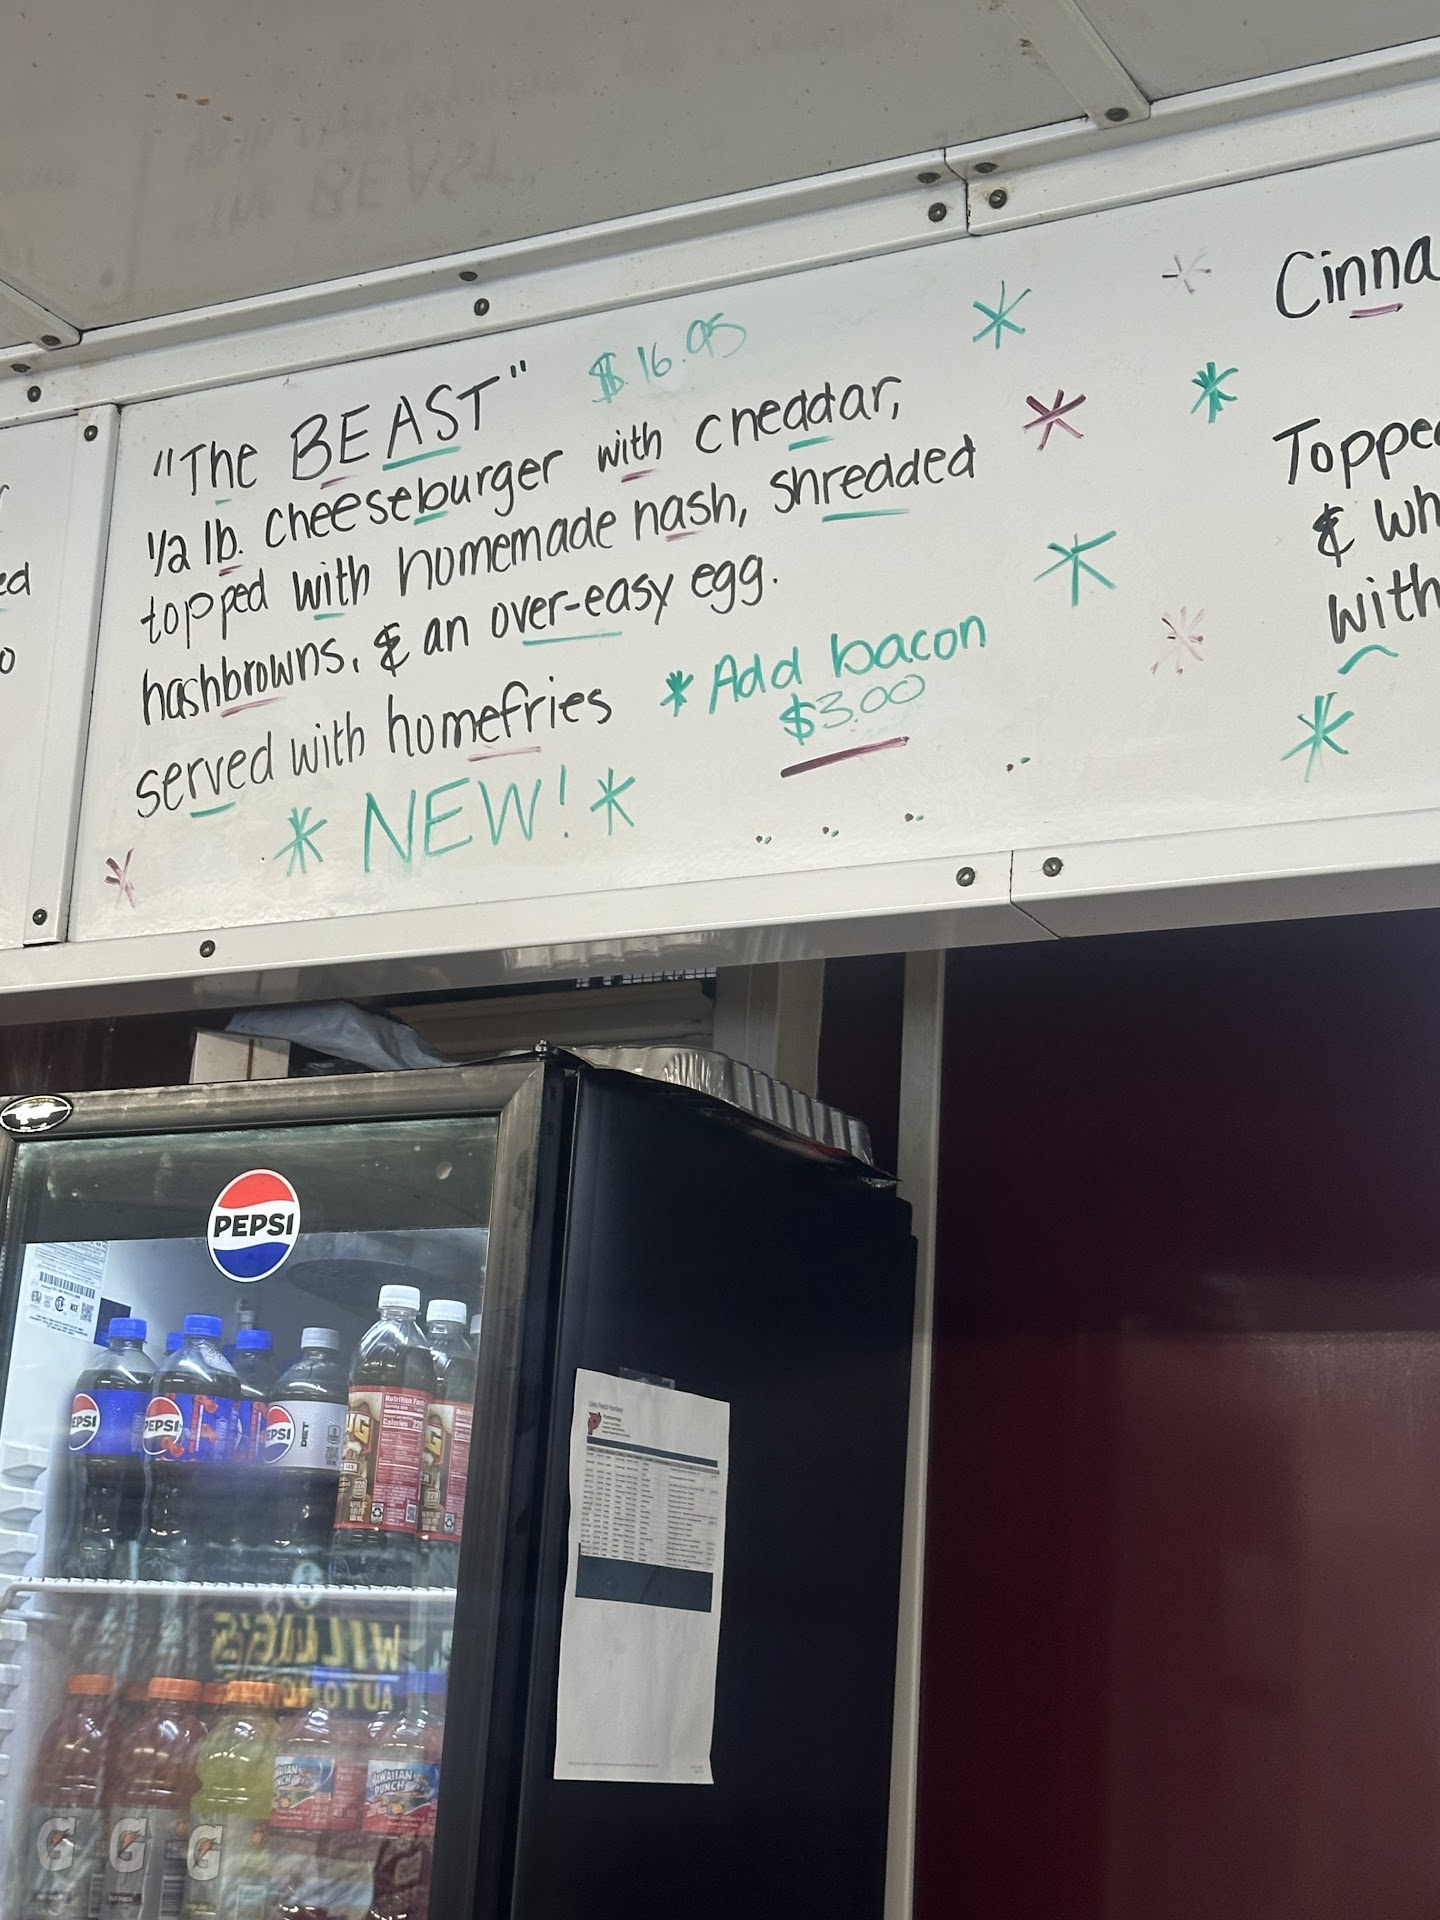 "The BEAST" $16.95
1/2 lb. cheeseburger with cheddar,
topped with homemade hash, shredded
hashbrowns, & an over-easy egg.
served with homefries
*Add bacon
$3.00
* NEW! *
Cinna
Topped
& wh
with
ed
PEPSI
PEPSI
PEPSI
PEPSI
DIET
Nutrition Facts
Calories
220
WILLIE'S
HAWAIIAN
PUNCH
HAWAIIAN
PUNCH
G
G
G